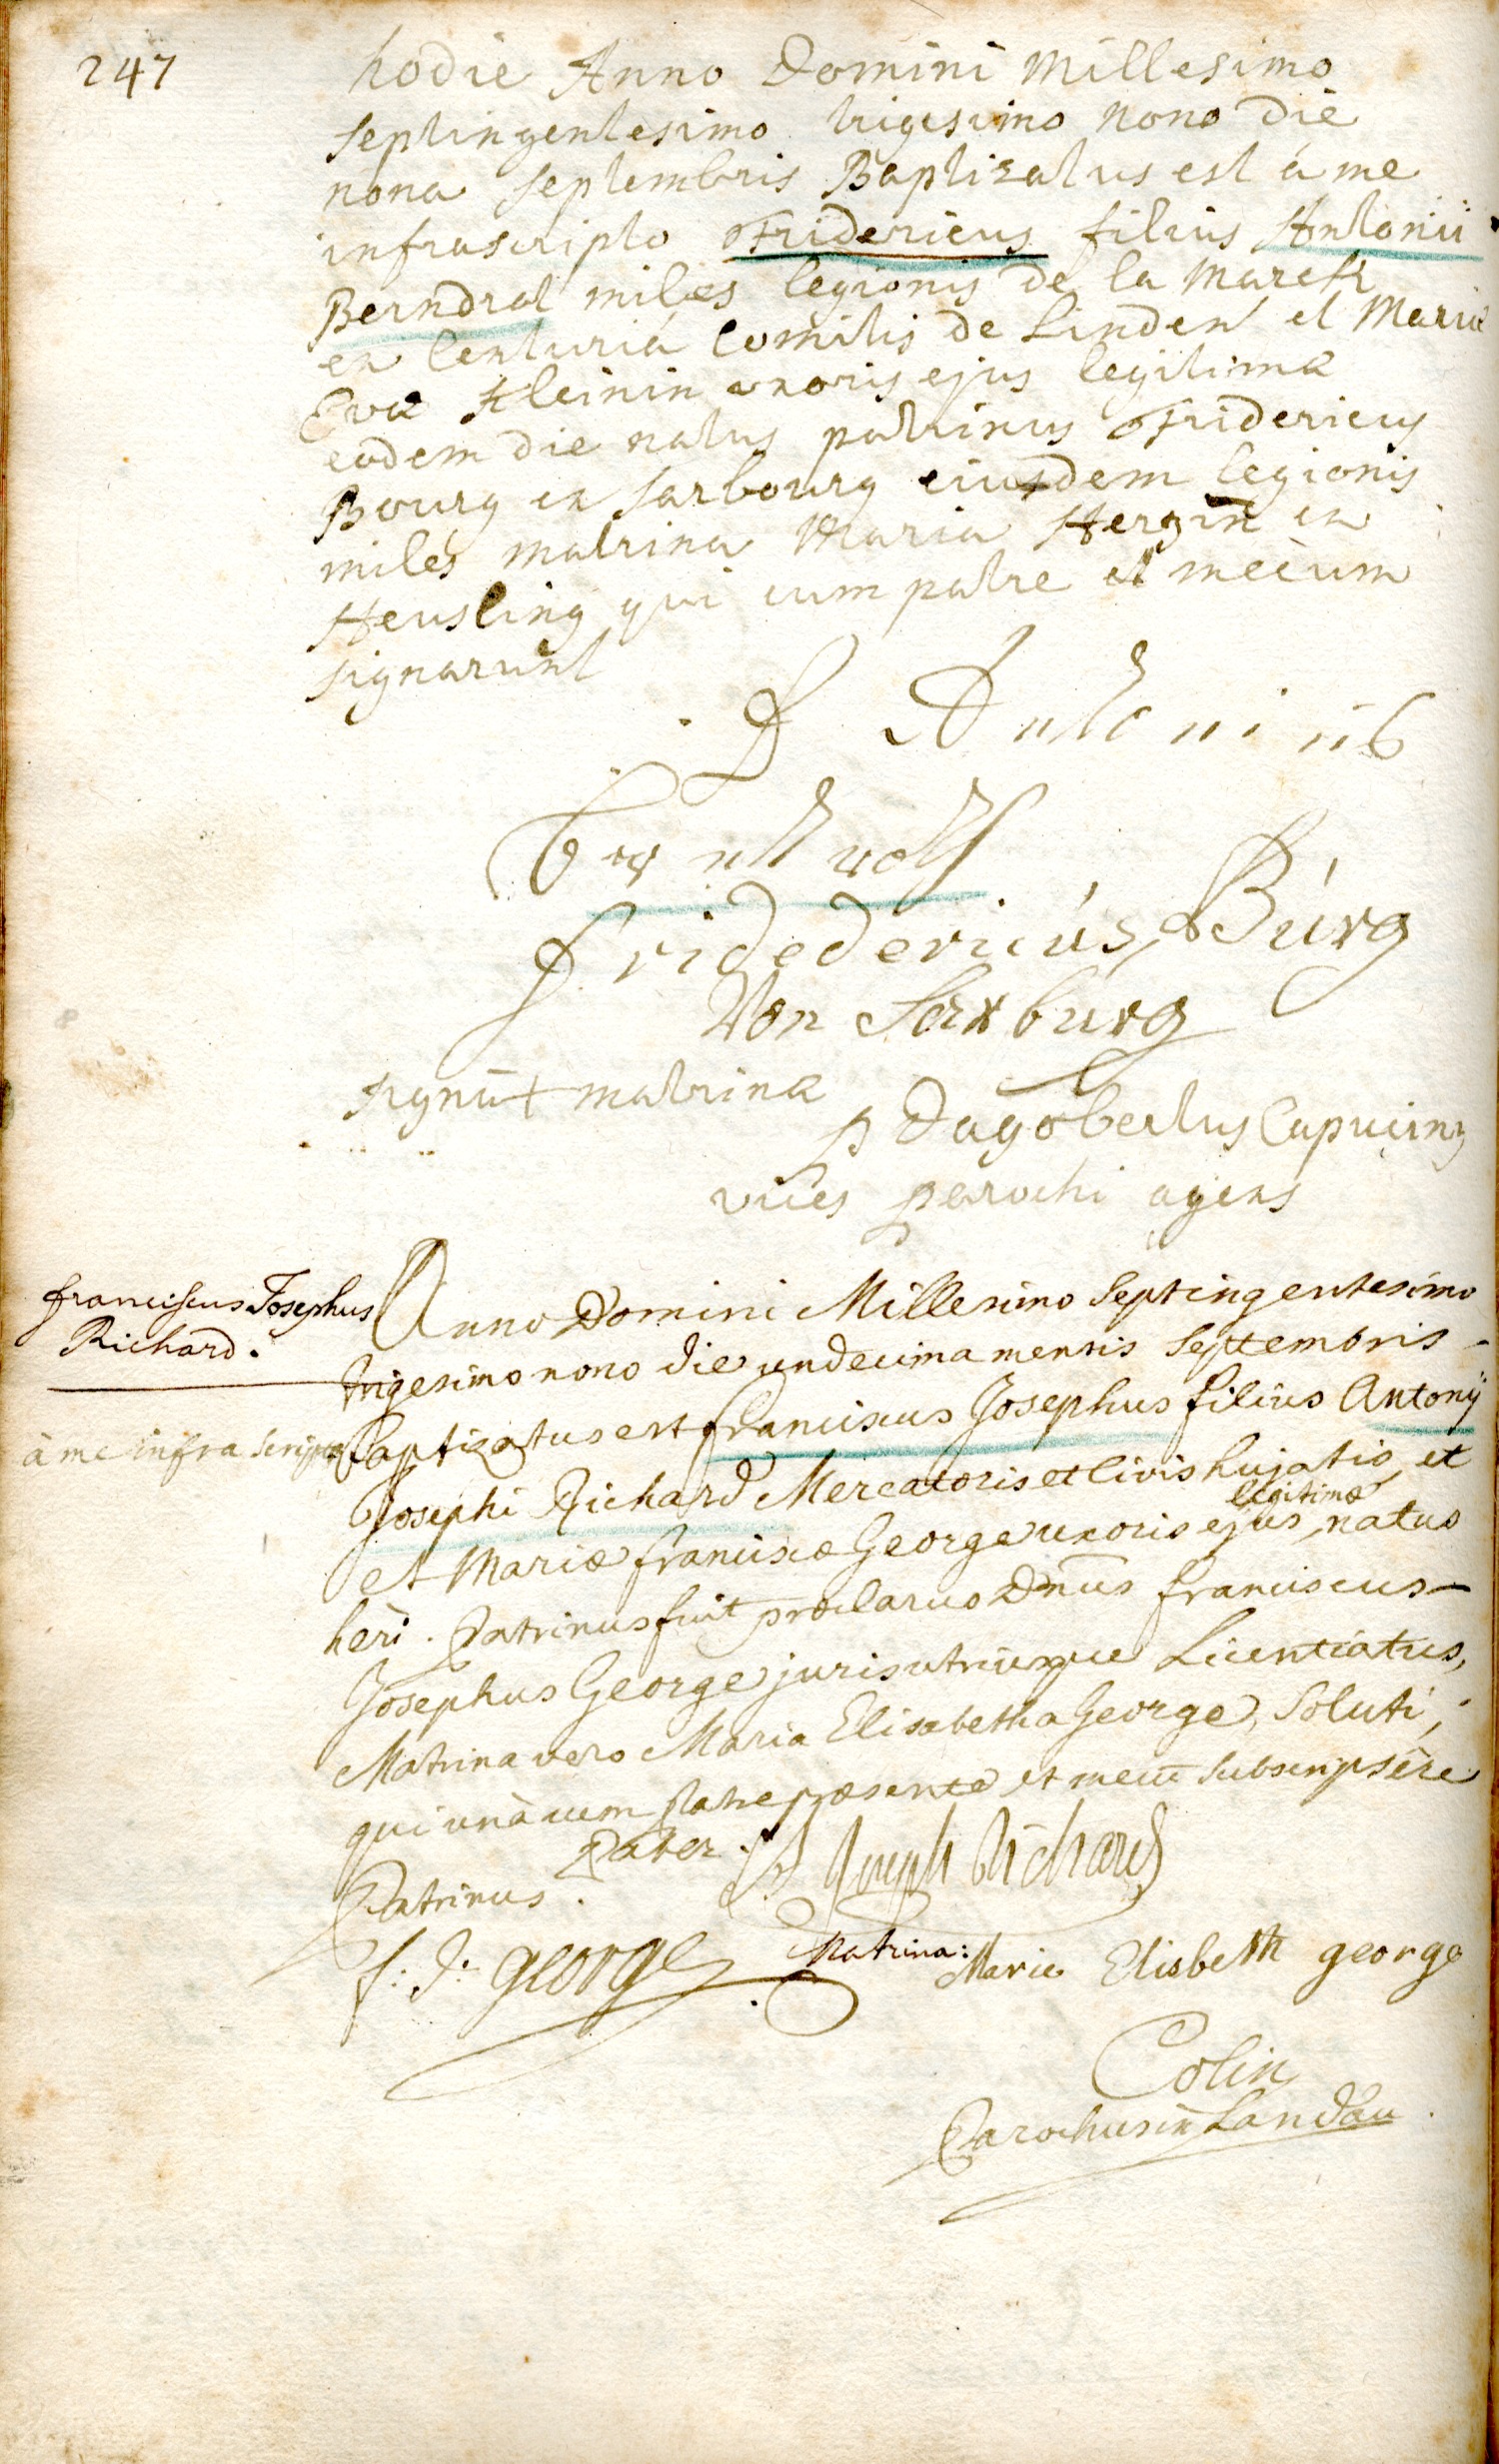 247
hodie Anno Domini Millesimo
septingentesimo trigesimo nono die
nona septembris Baptizatus est à me
infrascripto Fridericus filius Antonii
Berndrot miles legionis de la Marck
ex Centuriá Comitis de Linden et Mariæ
Evæ Kleinin uxoris ejus legitimæ
eodem die natus patrinus Fridericus
Bourg ex Sarbourg eiusdem legionis
miles matrina Maria Herzin ex
Heusling qui cum patre et mecum
signarunt
Antonius
Fridedericús Búrg
Von Sarbúrg
signũ + matrinæ
p Dagobertus Capucinus
vices parochi agens
franciscus Josephus
Richard.
Anno Domini Millesimo Septingentesimo
trigesimo nono die undecima mensis Septembris -
à me infra scripto baptizatus est franciscus Josephus filius Antonÿ
Josephi Richard Mercatoris et civis hujatis, et
et Mariæ franciscæ George uxoris ejus legitimæ, natus
heri. Patrinus fuit præclarus Dnus franciscus
Josephus George juris utriusque Licentiatus,
Matrina vero Maria Elisabetha George, Soluti,
qui unà cum Patre præsente et mecũ subscripsêre
Pater. Joseph Richard
Patrinus.
f: J: george
Matrina: Marie Elisbeth george
Colin
Parochus in Landau.